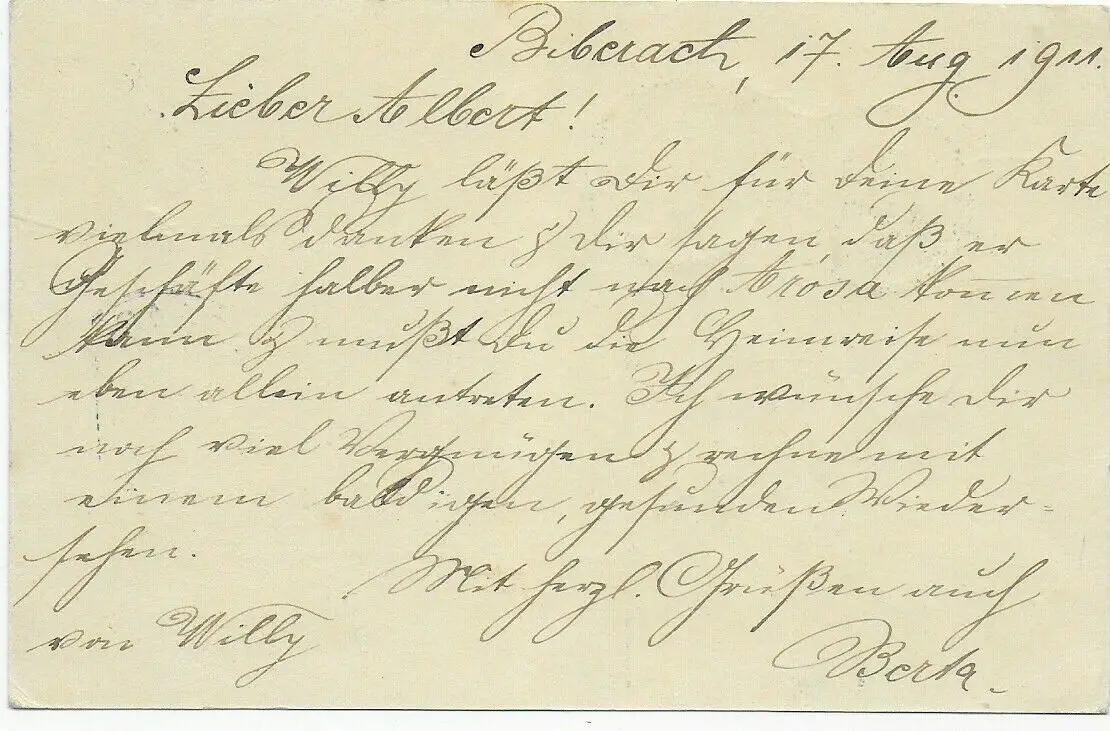 Biberach, 17. Aug. 1911.
Lieber Albert!
Willy läßt Dir für Deine Karte
vielmals danken & Dir sagen, daß er
Geschäfte halber nicht nach Arosa kommen
kann & mußt Du die Heimreise nun
eben allein antreten. Ich wünsche Dir
noch viel Vergnügen & rechne mit
einem baldigen, gesunden Wieder=
sehen.
Mit herzl. Grüßen auch
von Willy
Berta.